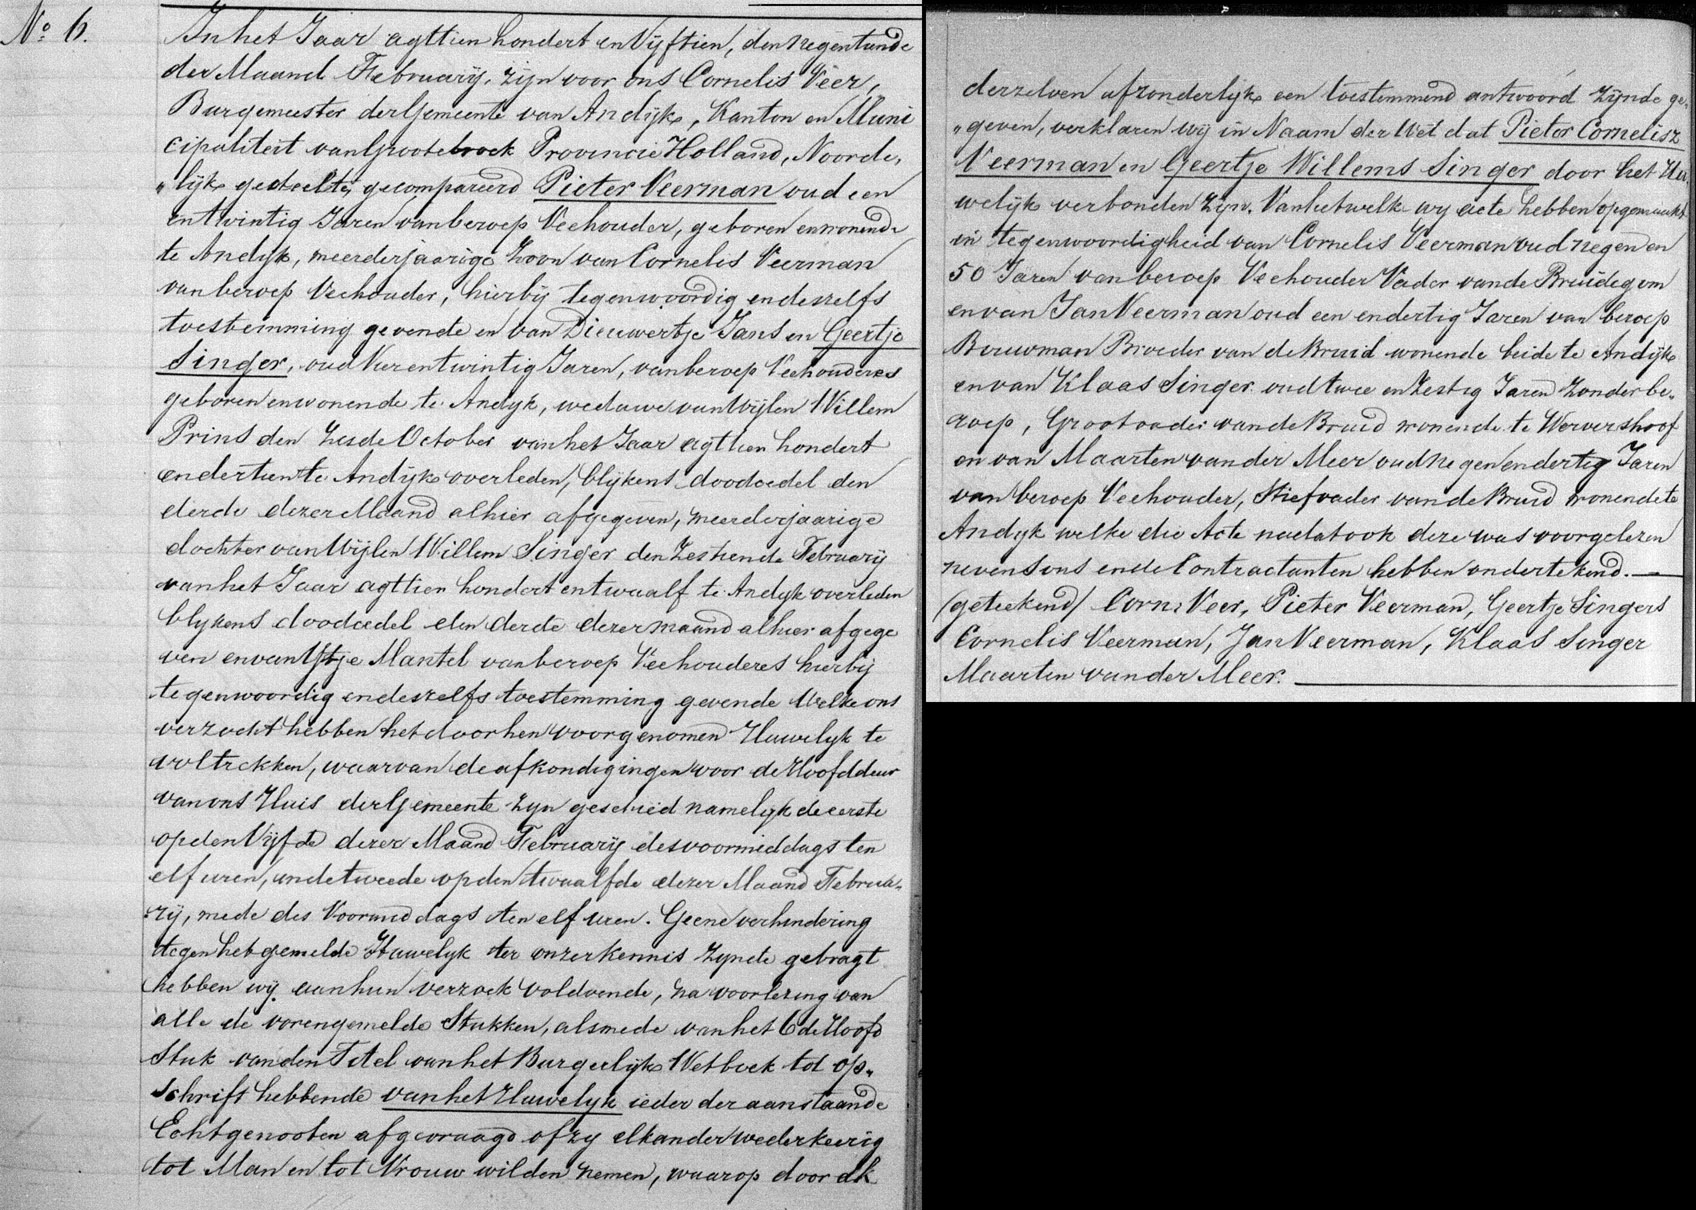 No 6.
In het Jaar agttien hondert en Vijftien, den negentiende
der Maand February, zijn voor ons Cornelis Veer,
Burgemeester der Gemeente van Andijk, Kanton en Muni
cipaliteit van Grootebroek Provincie Holland, Noorde,
„lijk gedeelte, gecompareerd Pieter Veerman oud een
entwintig Jaren van beroep Veehouder, geboren en wonende
te Andyk, meerderjaarige Zoon van Cornelis Veerman
van beroep Veehouder, hierbij tegenwoordig en deszelfs
toestemming gevende en van Dieuwertje Jans en Geertje
Singer, oud Vier entwintig Jaren, van beroep Veehouderes
geboren en wonende te Andyk, weduwe van Wijlen Willem
Prins den Zesde October van het Jaar agttien hondert
en dertien te Andijk overleden, blijkens doodcedel den
derde dezer Maand alhier afgegeven, meerderjaarige
dochter van Wijlen Willem Singer den Zestiende February
van het Jaar agttien hondert entwaalf te Andyk overleden
blykens doodcedel den derde dezer maand alhier afgege
ven en van Mantel van beroep Veehouderes hierbij
tegenwoordig en deszelfs toestemming gevende Welke ons
verzocht hebben het door hen voorgenomen Huwelyk te
voltrekken, waarvan de afkondigingen voor de Hoofddeur
van ons Huis der Gemeente zyn geschied namelyk de eerste
op den Vijfde dezer Maand February des voormiddags ten
elf uren, en de tweede op den twaalfde dezer Maand Februa-
rij, mede des Voormiddags ten elf uren. Geene verhindering
tegen het gemelde Huwelyk ter onzer kennis Zynde gebragt
hebben wij aan hun verzoek voldoende, na voorlezing van
alle de vorengemelde Stukken, alsmede van het 6de Hoofd
Stuk van den Titel van het Burgerlijk Wetboek tot op-
schrift hebbende van het Huwelyk ieder der aanstaande
Echtgenooten afgevraagd of zy elkander wederkeerig
tot Man en tot Vrouw wilden nemen, waarop door elk
derzelven afzonderlijk een toestemmend antwoord Zijnde ge-
„geven, verklaren wij in Naam der Wet dat Pieter Cornelisz
Veerman en Geertje Willems Singer door het Hu-
welijk verbonden Zyn. Van hetwelk wy acte hebben opgemaakt
in tegenwoordigheid van Cornelis Veerman oud negen en
50 Jaren van beroep Veehouder Vader van de Bruidegom
en van Jan Veerman oud een en dertig Jaren van beroep
Bouwman Broeder van de Bruid wonende beide te Andijk
en van Klaas Singer oud twee en Zestig Jaren Zonder be-
roep, Grootvader van de Bruid wonende te Wervershoof
en van Maarten van der Meer oud negen en dertig Jaren
van beroep Veehouder, Stiefvader van de Bruid wonende te
Andyk welke die Acte nadat ook deze was voorgelezen
nevens ons en de Contractanten hebben ondertekend.
(geteekend) Corns Veer, Pieter Veerman, Geertje Singers
Cornelis Veerman, Jan Veerman, Klaas Singer
Maarten van der Meer.